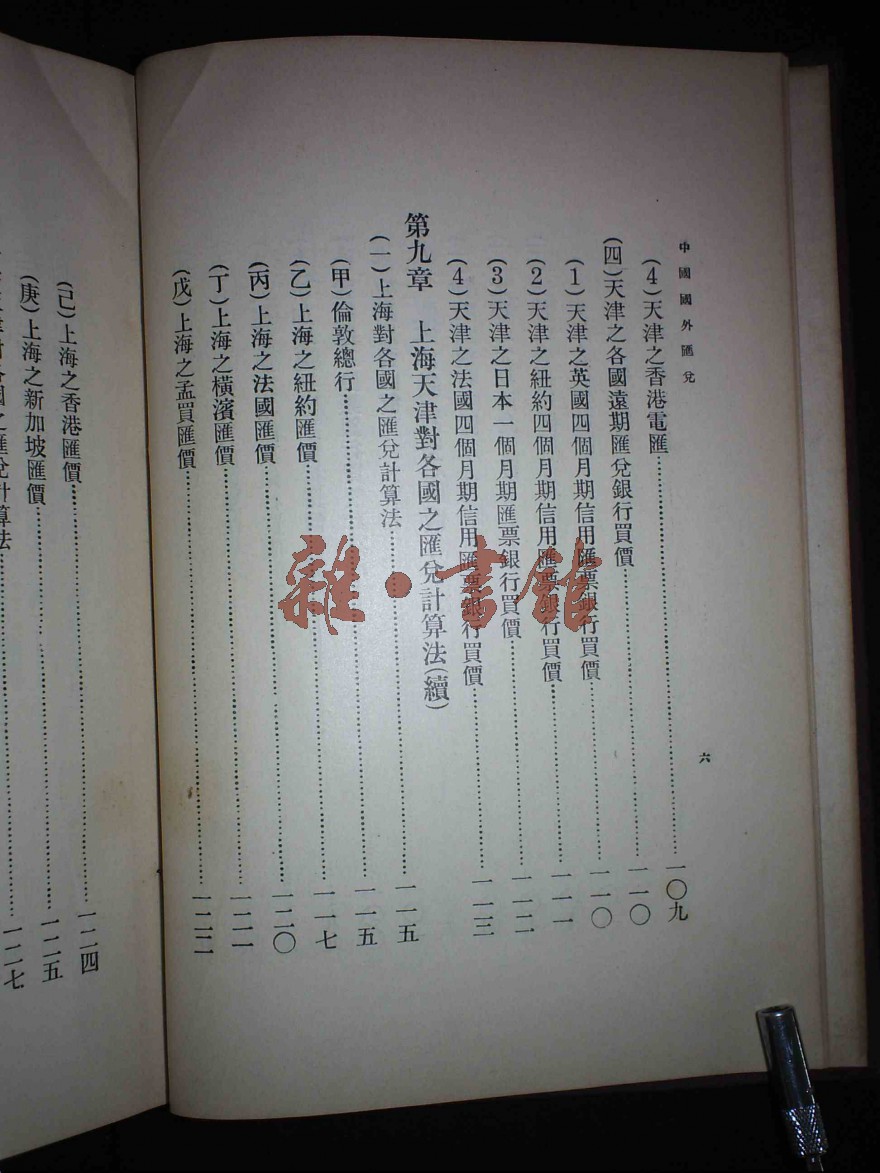 中國國外匯兌
六
(4)天津之香港電匯……一〇九
(四)天津之各國遠期匯兌銀行買價……一一〇
(1)天津之英國四個月期信用匯票銀行買價……一一〇
(2)天津之紐約四個月期信用匯票銀行買價……一一一
(3)天津之日本一個月期匯票銀行買價……一一二
(4)天津之法國四個月期信用匯票銀行買價……一一三
第九章　上海天津對各國之匯兌計算法(續)
(一)上海對各國之匯兌計算法……一一五
(甲)倫敦總行……一一五
(乙)上海之紐約匯價……一一七
(丙)上海之法國匯價……一二〇
(丁)上海之橫濱匯價……一二一
(戊)上海之孟買匯價……一二二
(己)上海之香港匯價……一二四
(庚)上海之新加坡匯價……一二五
之匯兌計算法……一二七
雜·書館